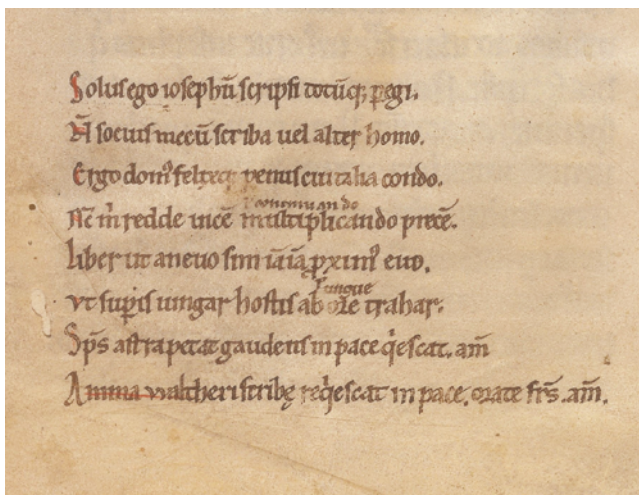 Solus ego iosephū scripsi totūq; ꝑegi.
Nō socius mecū scriba uel alter homo.
Ergo domꝰ felix venus cui talia condo.
l' continuando
Ac m̄ redde uicē multiplicando precē.
Liber ut a neuo sim iā iā ꝓximꝰ euo.
l' fauce
vt suꝑis iungar hostis ab ore trahar.
Sp̄s astra petat gaudens in pace q̇escat. am̄
Anima waltheri scribę req̇escat in pace. orate fr̄s. am̄.